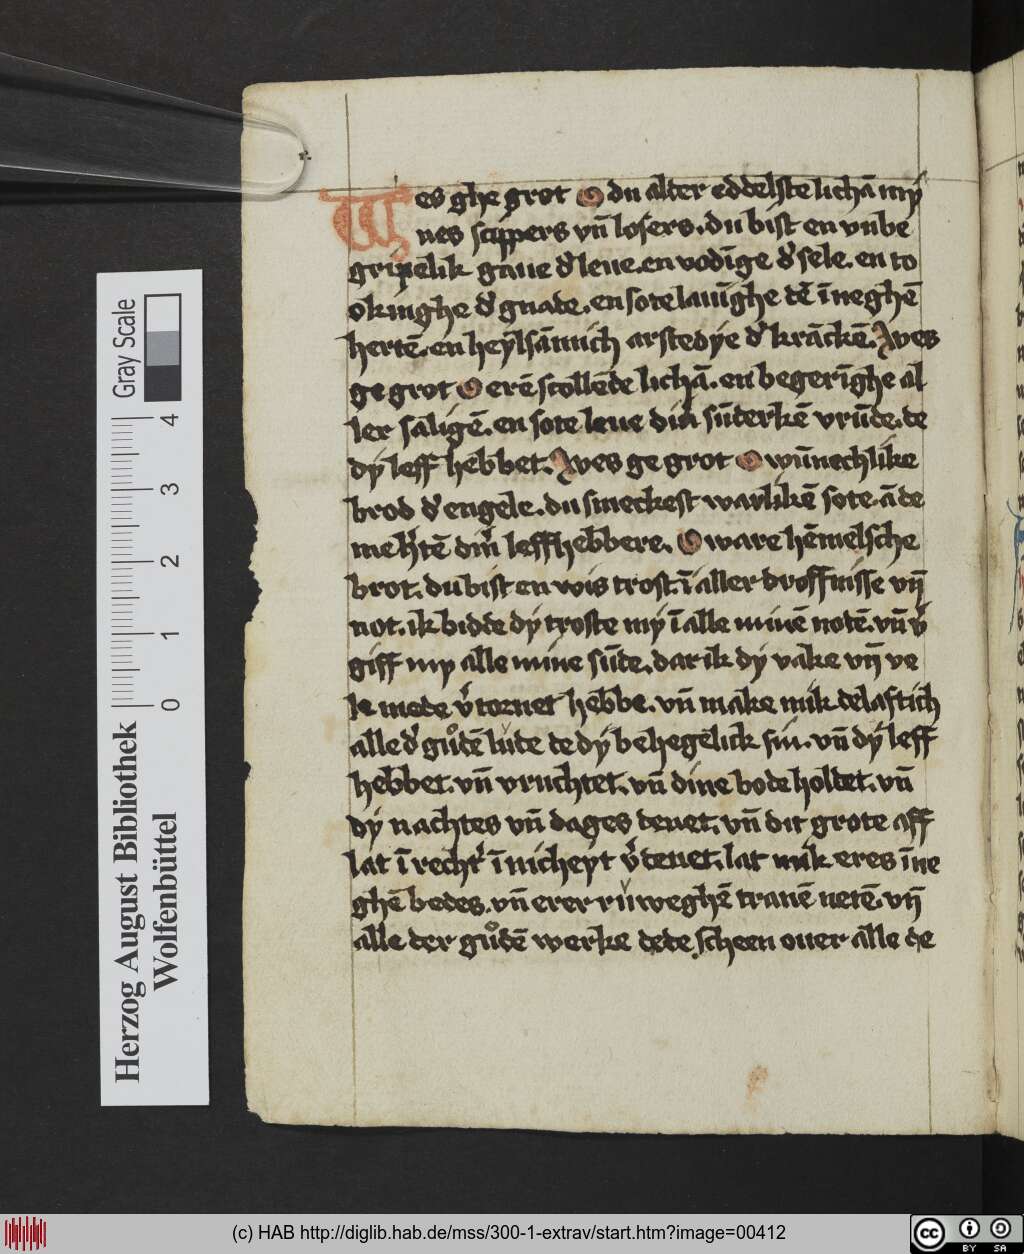 Wes ghe grot O du alter eddelste lichā my
nes scippers vn̄ losers. du bist en vnbe
gripelik gaue d' leue. en vodīge d' sele. en to
okinghe d' gnade. en sote lauīghe dē īneghē
hertē. en heylsāmich arstedye d' krāckē. Wes
ge grot O erē stollēde lichā. en begerīghe al
ler saligē. en sote leue din sūderkē vrūde. de
dy leff hebbet. Wes ge grot O wūnechlike
brod d' engele. du smeckest warlikē sote. ā de
brot. du bist en wis trost. ī aller droffnisse vn̄
not. ik bidde dy troste my ī alle minē notē. vn̄ v'
giff my alle mine sūde. dar ik dy vake vn̄ ve
le mede v'tornet hebbe. vn̄ make mik delaftich
alle d' gůdē lude de dy behegelick sin. vn̄ dy leff
hebbet. vn̄ vruchtet. vn̄ dine bode holdet. vn̄
dy nachtes vn̄ dages denet. vn̄ dit grote aff
lat ī recht' īnicheyt v'denet. lat mik eres īne
ghē bedes. vn̄ erer ruweghē tranē netē. vn̄
alle der gůdē werke dede scheen ouer alle de
Herzog August Bibliothek
Wolfenbüttel
0 1 2 3 4
Gray Scale
(c) HAB http://diglib.hab.de/mss/300-1-extrav/start.htm?image=00412
cc BY SA